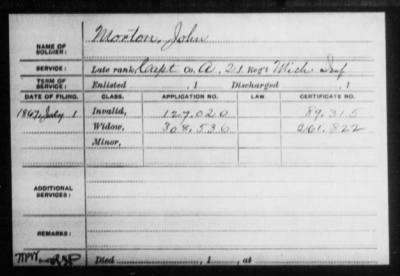 NAME OF SOLDIER: Morton, John
SERVICE: Late rank, Capt Co. A, 21 Reg't Mich Inf
TERM OF SERVICE: Enlisted , 1 Discharged , 1
DATE OF FILING. CLASS. APPLICATION NO. LAW. CERTIFICATE NO.
1867, July 1 Invalid, 127,020 89,315
Widow, 308,536 261,822
Minor,
ADDITIONAL SERVICES:
REMARKS:
Died , 1 , at